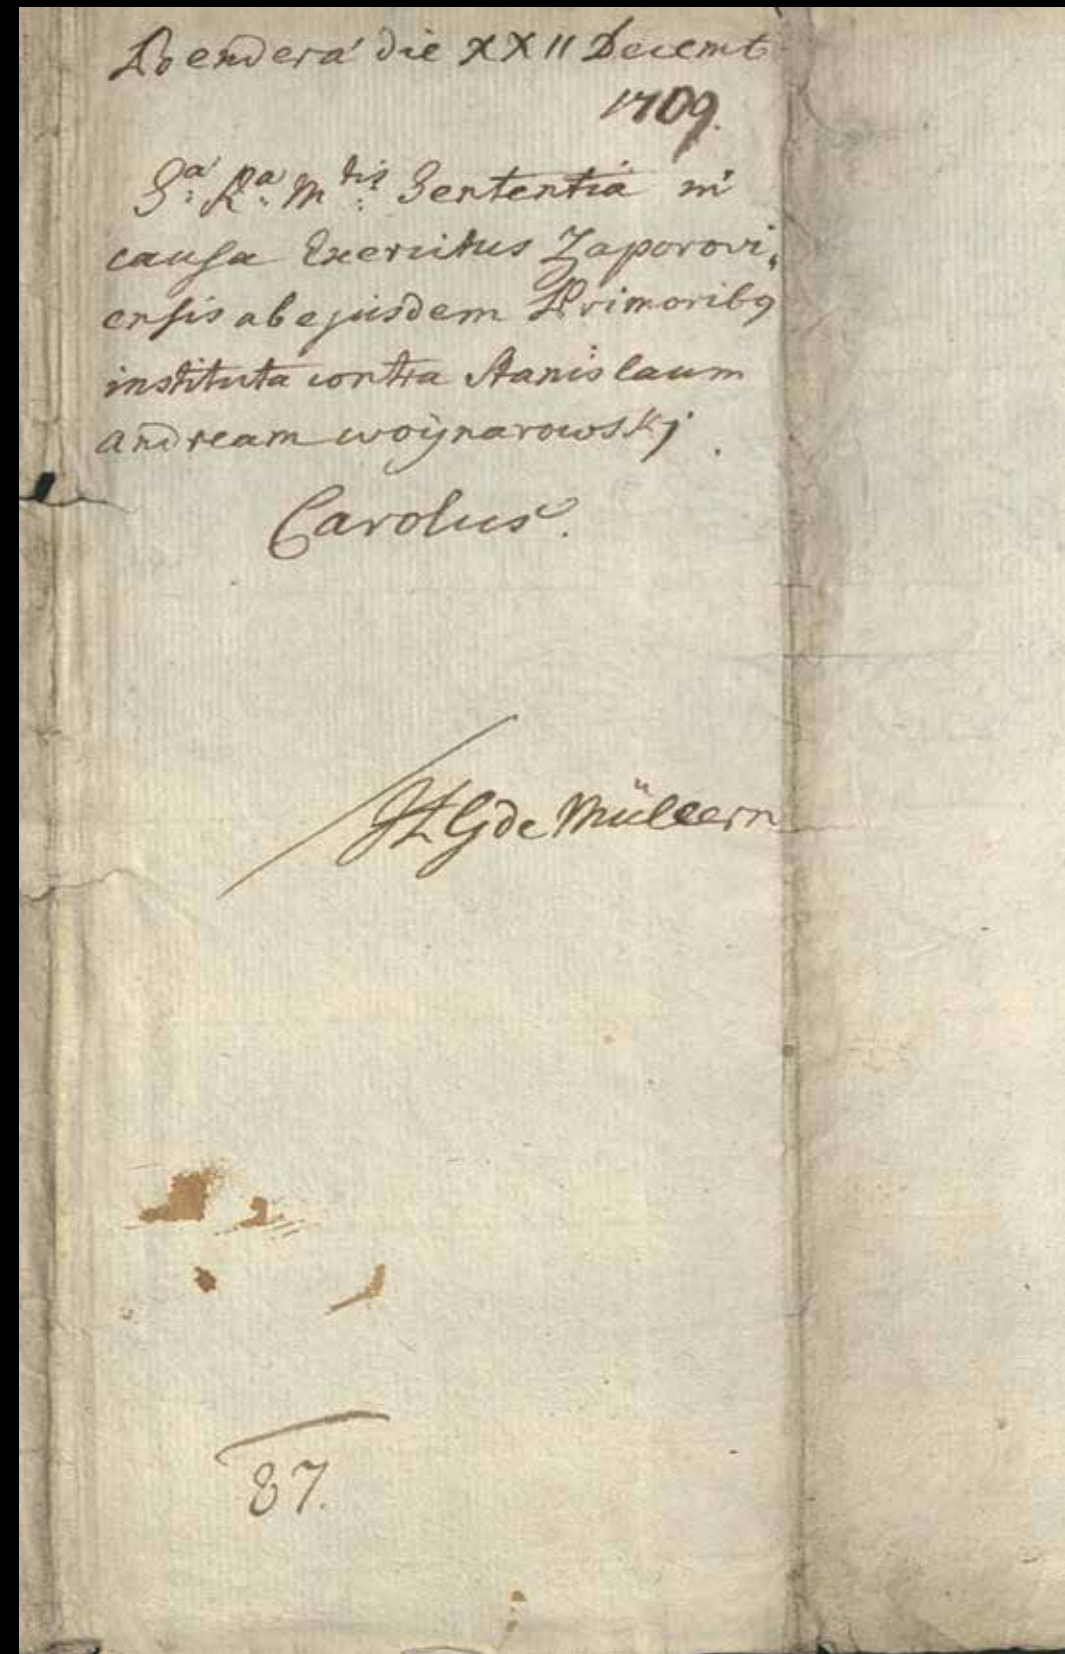 Benderâ die XXII Decemb
1709.
Sa: Ra: Mtis: Sententia in
causa Exercitus Zaporovi,
ensis ab ejusdem Primoribq
instituta contra Stanislaum
Andream Woÿnarowskj.
Carolus.
HG de Müllern
87.